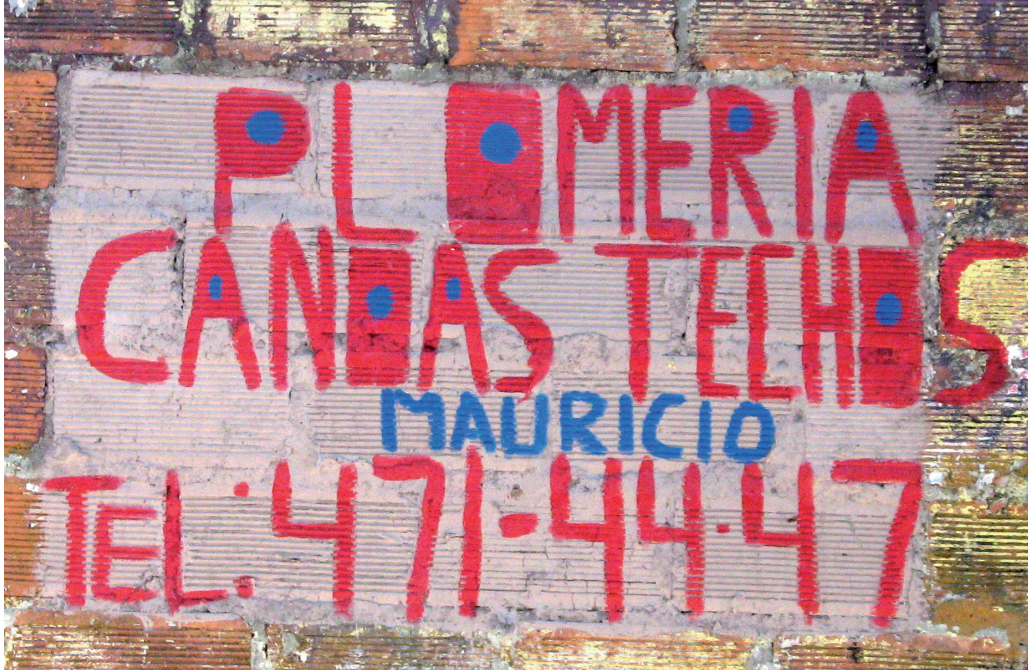 PLOMERIA
CANOAS TECHOS
MAURICIO
TEL: 471-44.47